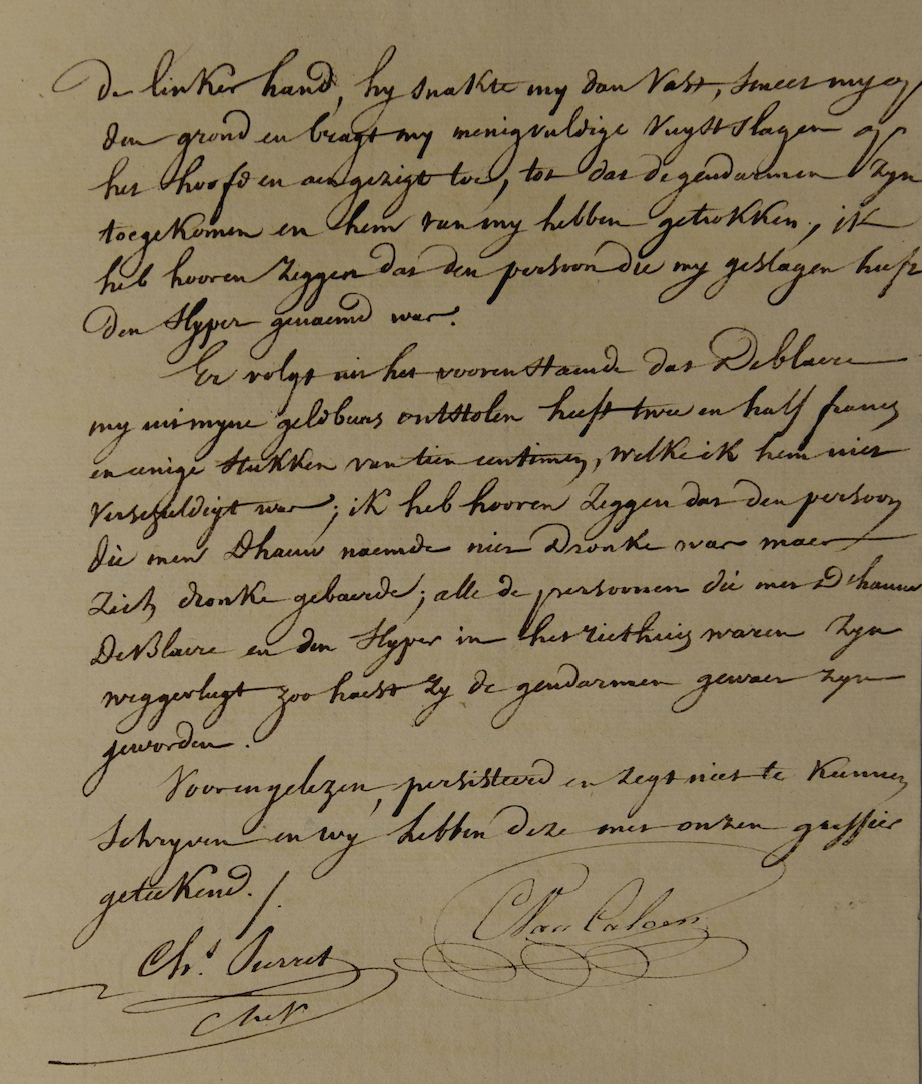 de linker hand, hy snakte my dan vast, smeet my op
den grond en bragt my menigvuldige vuystslagen op
het hoofd en aengezigt toe, tot dat de gendarmen zyn
toegekomen en hem van my hebben getrokken, ik
heb hooren zeggen dat den persoon die my geslagen heeft
den Hyper genaemd was.
Er volgt uit het voorenstaende dat Deblaere
my uit myne geldbeurs ontstolen heeft twee en half francs
en eenige stukken van tien centimen, welke ik hem niet
verschuldigt was; ik heb hooren zeggen dat den persoon
die men Dhauw naemde niet dronke was maer
zich dronke gebaerde; alle de persoonen die met Dhauw
DeBlaere en den Hyper in het riethuis waren zyn
weggevlugt zoo haest zy de gendarmen gewaer zyn
geworden.
Voorengelezen, persisteerd en zegt niet te kunnen
schryven en wy hebben deze met onzen greffier
geteekend. /.
Chs. Perret
C Van Caloen